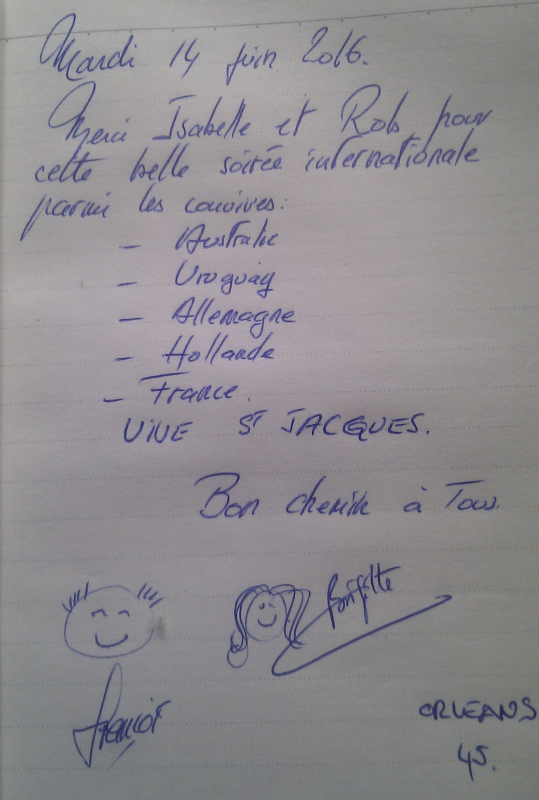 Mardi 14 juin 2016.
Merci Isabelle et Rob pour
cette belle soirée internationale
parmi les convives:
– Australie
– Uruguay
– Allemagne
– Hollande
– France.
VIVE ST JACQUES.
Bon chemin à Tous.
Brigitte
Francis
ORLEANS
45.